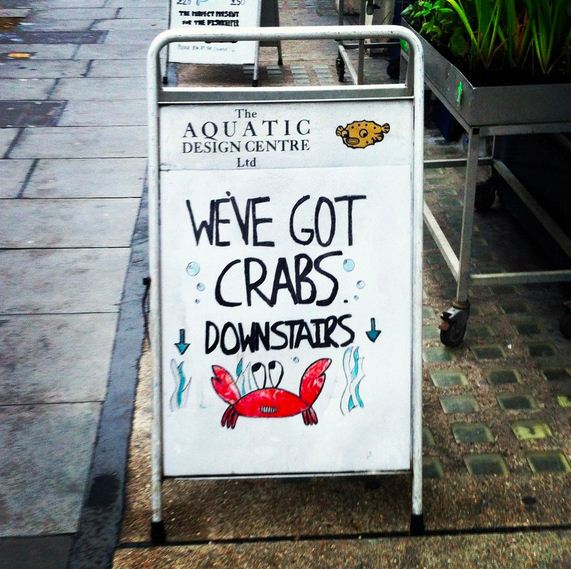 £50
THE PERFECT PRESENT
FOR THE FISHKEEPER
The
AQUATIC
DESIGN CENTRE
Ltd
WE'VE GOT
CRABS.
DOWNSTAIRS